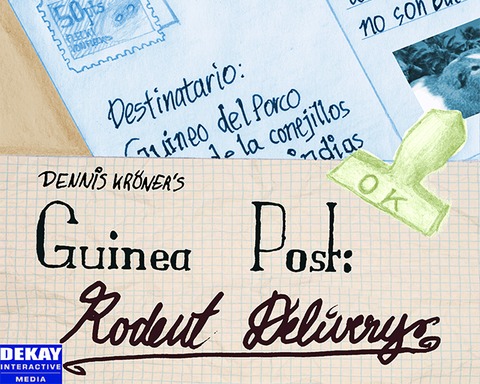 50pts
no son
Destinatario:
Guineo del Porco
de la conejillos
indias
OK
DENNIS KRÖNER'S
Guinea Post:
Rodent Delivery
DEKAY
INTERACTIVE
MEDIA